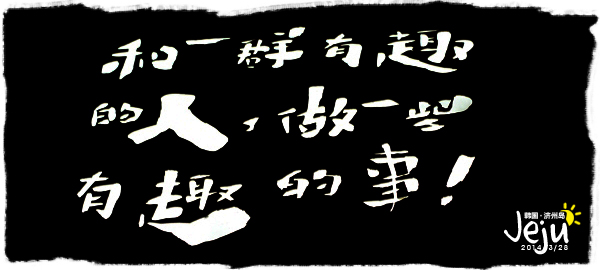 和一群有趣
的人，做一些
有趣的事！
韩国·济州岛
Jeju
2014/3/28